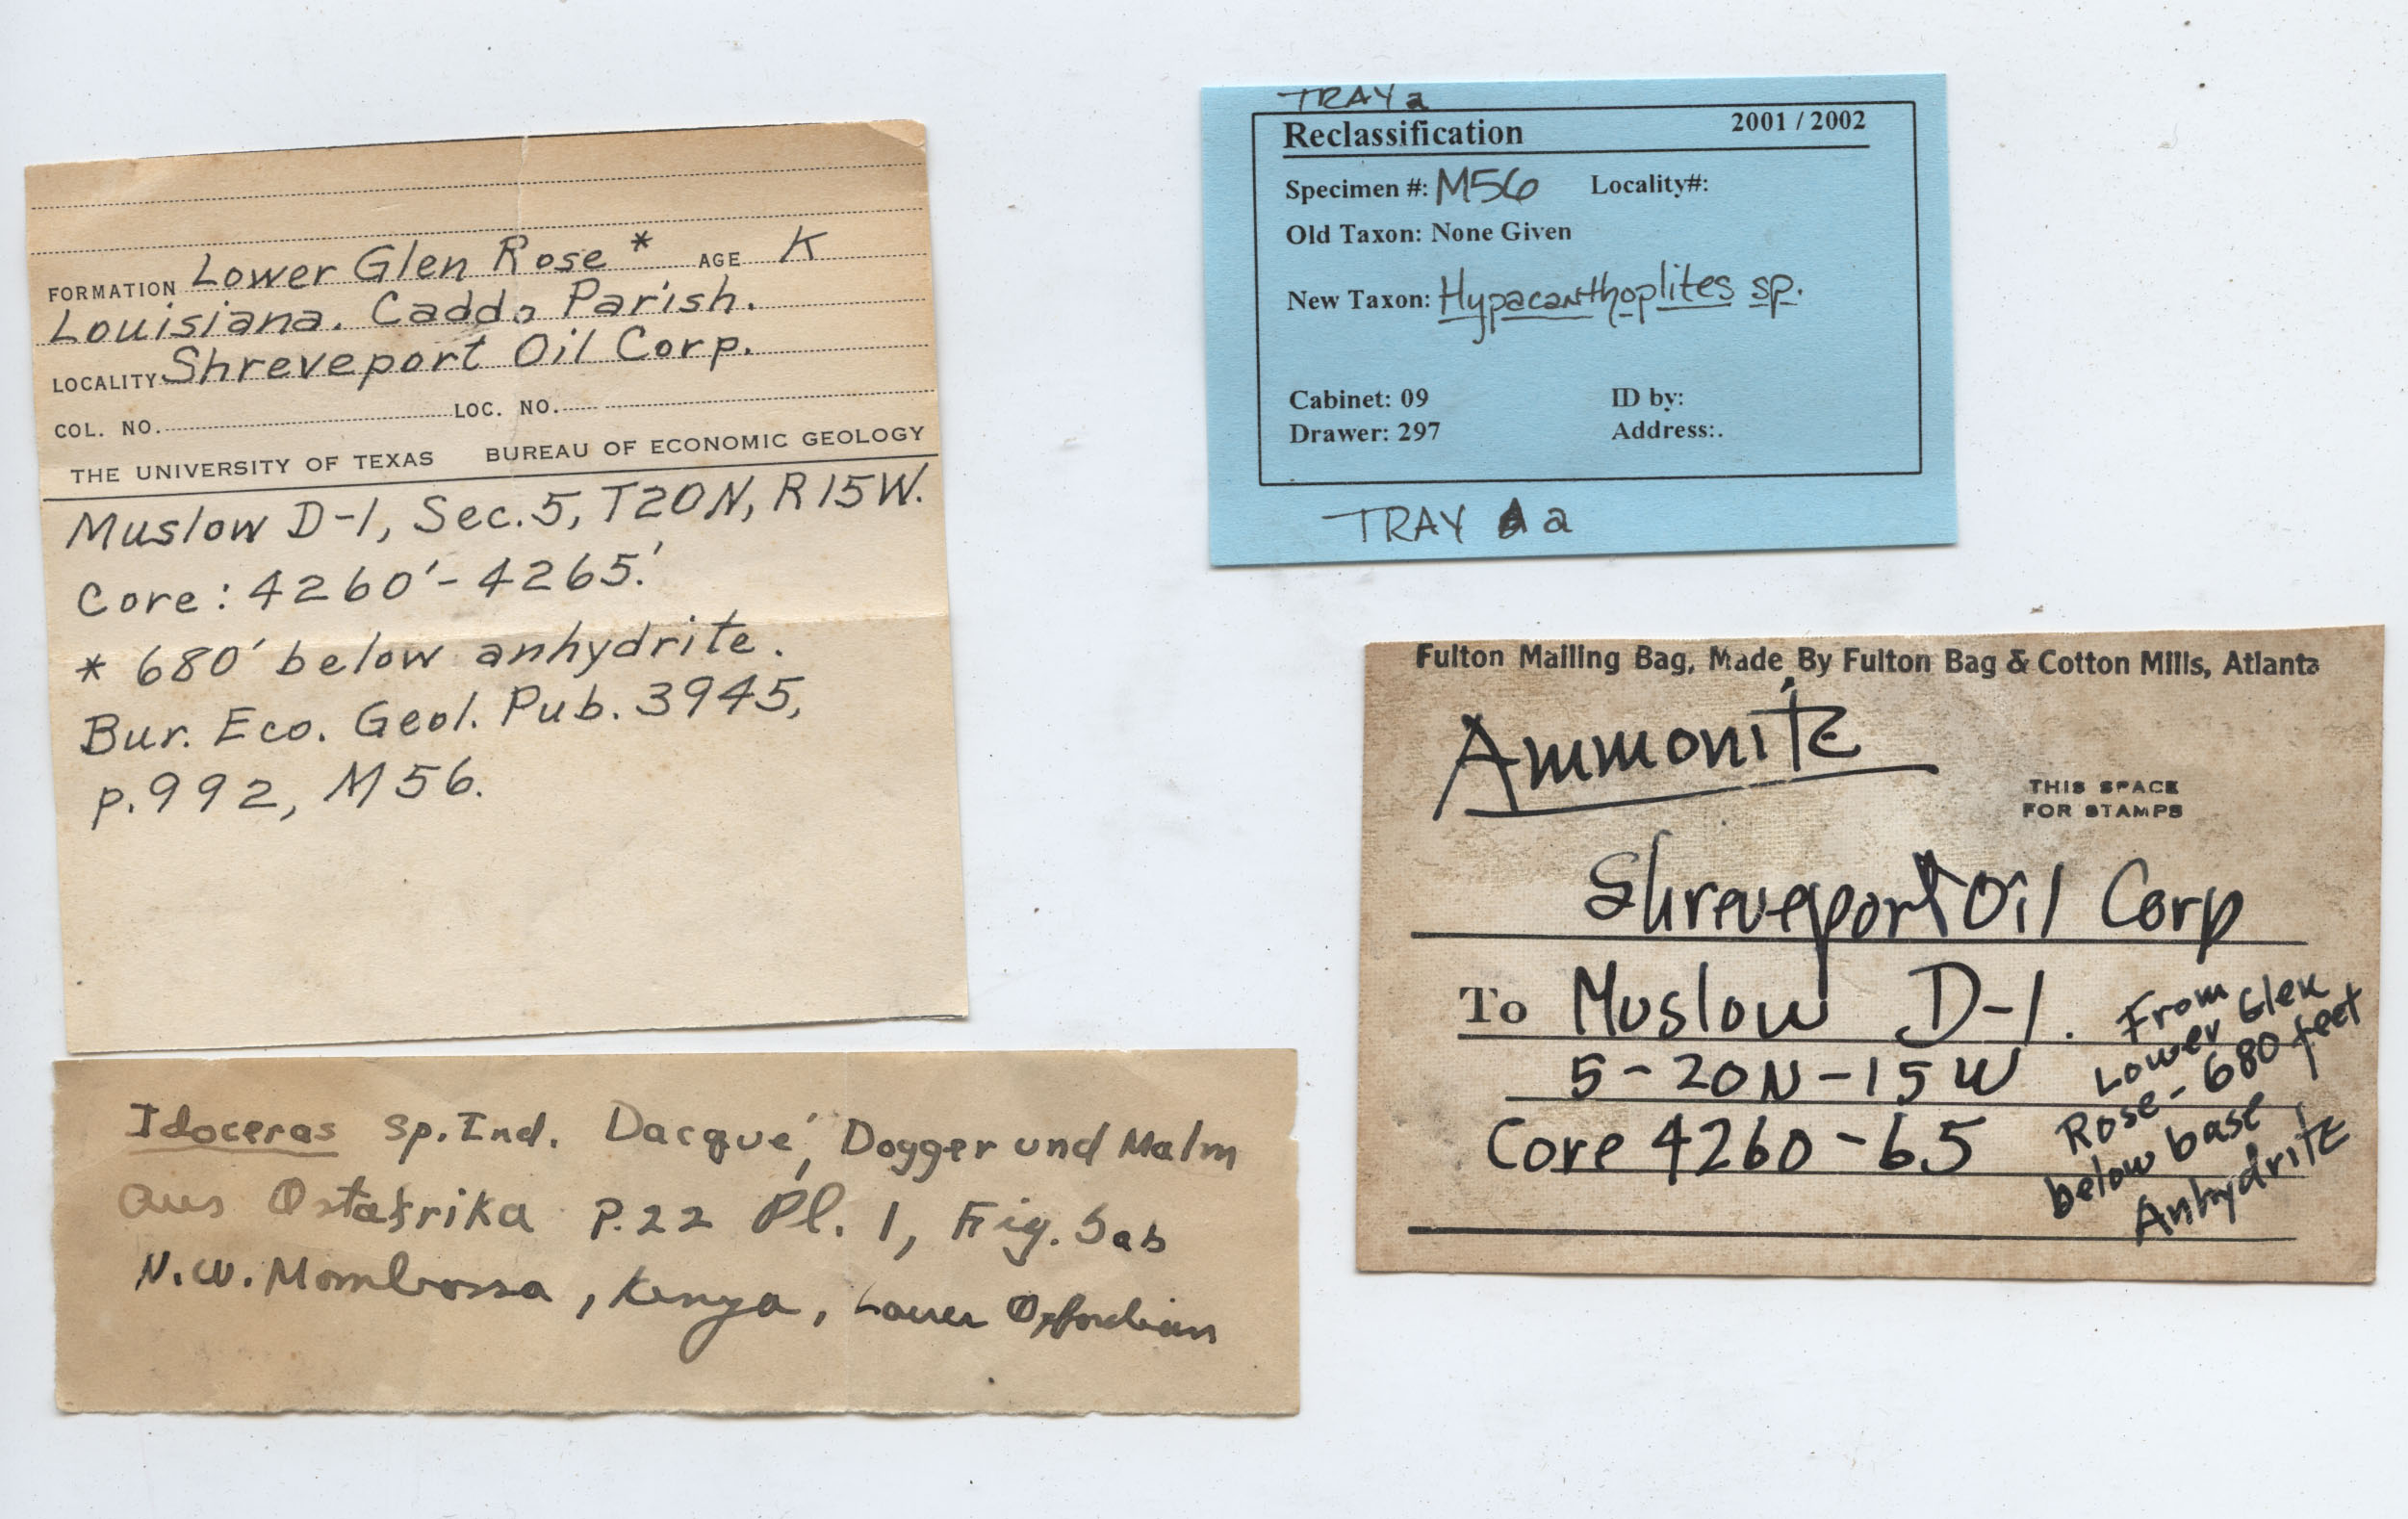 FORMATION Lower Glen Rose * AGE K
Louisiana. Caddo Parish.
LOCALITY Shreveport Oil Corp.
COL. NO. LOC. NO.
THE UNIVERSITY OF TEXAS BUREAU OF ECONOMIC GEOLOGY
Muslow D-1, Sec. 5, T20N, R15W.
Core: 4260'-4265.'
* 680' below anhydrite.
Bur. Eco. Geol. Pub. 3945,
p. 992, M56.
TRAY a
Reclassification 2001 / 2002
Specimen #: M56 Locality#:
Old Taxon: None Given
New Taxon: Hypacanthoplites sp.
Cabinet: 09 ID by:
Drawer: 297 Address:.
TRAY a
Fulton Mailing Bag, Made By Fulton Bag & Cotton Mills, Atlanta
Ammonite
THIS SPACE
FOR STAMPS
Shreveport Oil Corp
To Muslow D-1.
5-20N-15W
Core 4260-65
From
Lower Glen
Rose - 680 feet
below base
Anhydrite
Idoceras sp. Ind. Dacqué, Dogger und Malm
aus Ostafrika P. 22 Pl. 1, Fig. 5ab
N.W. Mombossa, Kenya, Lower Oxfordian